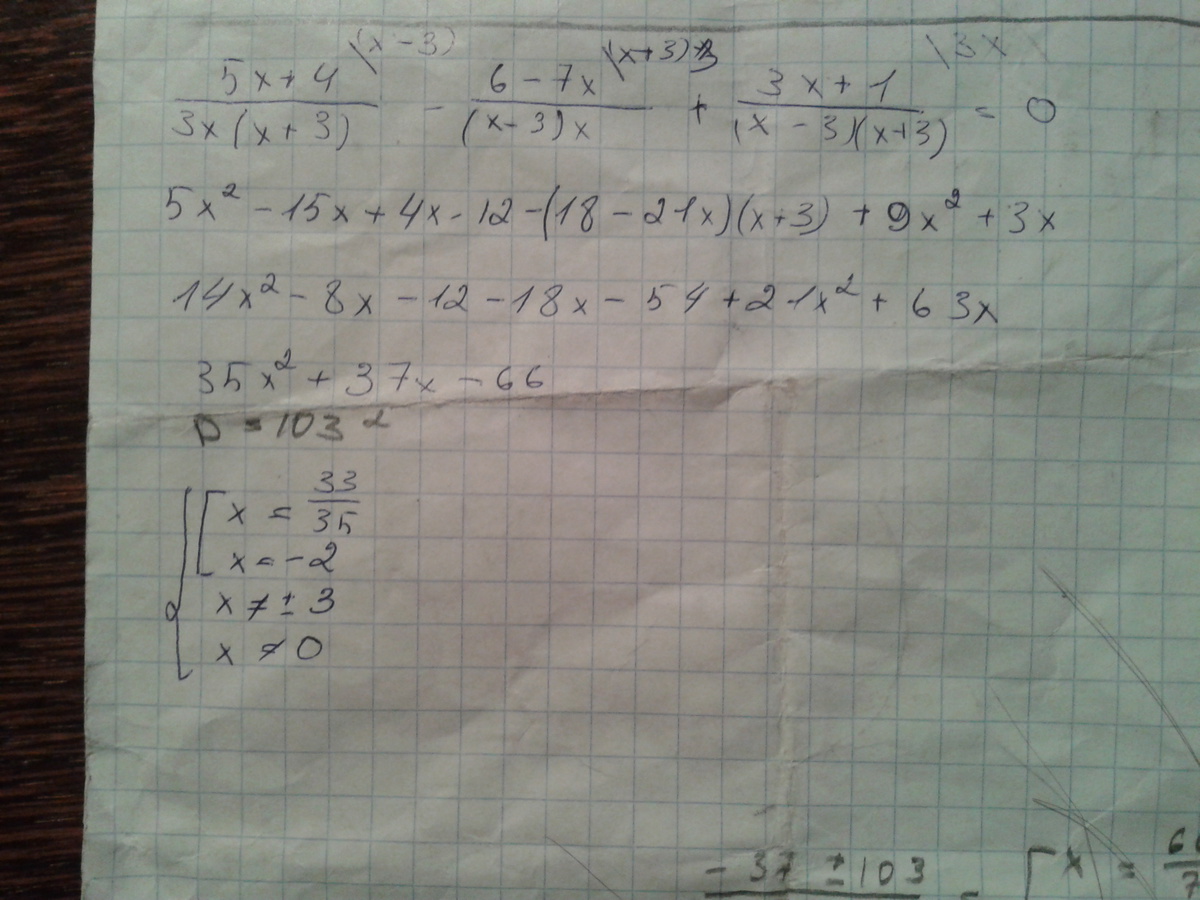 \(x-3) \(x+3)·3 \3x
(5x+4)/(3x(x+3)) - (6-7x)/((x-3)x) + (3x+1)/((x-3)(x+3)) = 0
5x² - 15x + 4x - 12 - (18 - 21x)(x+3) + 9x² + 3x
14x² - 8x - 12 - 18x - 54 + 21x² + 63x
35x² + 37x - 66
D = 103²
x = 33/35
x = -2
x ≠ ± 3
x ≠ 0
-37 ± 103 = [x =